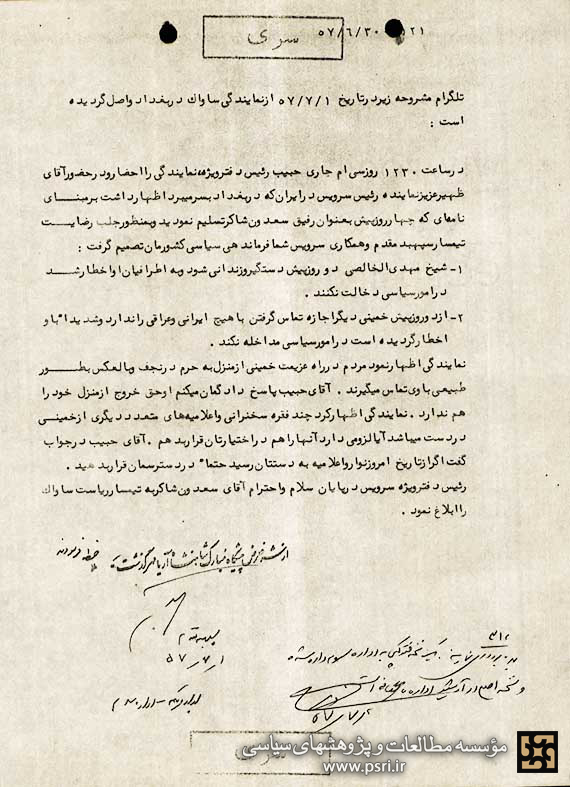 سری
۵۷/۶/۳۰
۲۱
تلگرام مشروحه زیر در تاریخ ۵۷/۷/۱ از نمایندگی ساواک در بغداد واصل گردیده
است :
در ساعت ۱۲۳۰ روز سی ام جاری حبیب رئیس دفتر ویژه نمایندگی را احضار و در حضور آقای
ظهیر عزیز نماینده رئیس سرویس در ایران که در بغداد بسر میبرد اظهار داشت بر مبنای
نامه‌ای که چهار روز پیش بعنوان رفیق سعدون شاکر تسلیم نمودید و بمنظور جلب رضایت
تیمسار سپهبد مقدم و همکاری سرویس شما فرماندهی سیاسی کشورمان تصمیم گرفت :
۱- شیخ مهدی الخالصی دو روز پیش دستگیر و زندانی شود و به اطرافیان او اخطار شد
در امور سیاسی دخالت نکنند .
۲- از دو روز پیش خمینی دیگر اجازه تماس گرفتن با هیچ ایرانی و عراقی را ندارد و شدیدا باو
اخطار گردیده است در امور سیاسی مداخله نکند .
نمایندگی اظهار نمود مردم در راه عزیمت خمینی از منزل به حرم در نجف و بالعکس بطور
طبیعی با وی تماس میگیرند . آقای حبیب پاسخ داد گمان میکنم او حق خروج از منزل خود را
هم ندارد . نمایندگی اظهار کرد چند فقره سخنرانی و اعلامیه‌های متعدد دیگری از خمینی
در دست میباشد آیا لزومی دارد آنها را هم در اختیارتان قرار بدهم . آقای حبیب در جواب
گفت اگر از تاریخ امروز نوار و اعلامیه به دستتان رسید حتما" در دسترسمان قرار بدهید .
رئیس دفتر ویژه سرویس در پایان سلام و احترام آقای سعدون شاکر به تیمسار ریاست ساواک
را ابلاغ نمود .
از شرف عرض پیشگاه مبارک شاهنشاه آریامهر گذشت
ملاحظه فرمودند
سپهبد مقدم
۵۷
سری
مؤسسه مطالعات و پژوهشهای سیاسی
www.psri.ir